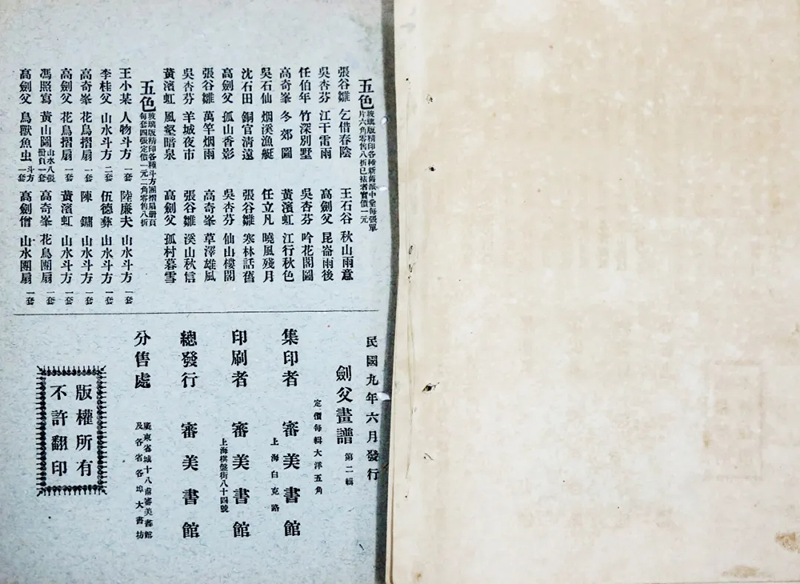 五色玻璃版精印各種新舊派中堂每張單
片六角零售八折已裱者實價一元
張谷雛 乞借春陰 王石谷 秋山雨意
吳杏芬 江干雷雨 高劍父 昆崙雨後
任伯年 竹深別墅 吳杏芬 吟花閣圖
高奇峯 冬郊圖 黃濱虹 江行秋色
吳石仙 烟溪漁艇 任立凡 曉風殘月
沈石田 銅官清遠 張谷雛 寒林話舊
高劍父 孤山香影 吳杏芬 仙山樓閣
張谷雛 萬竿烟雨 高奇峯 草澤雄風
吳杏芬 羊城夜市 張谷雛 溪山秋信
黃濱虹 風壑暗泉 高劍父 孤村暮雪
五色玻璃版精印各種斗方團摺扇册頁
每套四張定價一元二角零售八折
王小某 人物斗方 一套 陸廉夫 山水斗方 一套
李桂父 山水斗方 二套 伍德彝 山水斗方 一套
高奇峯 花鳥摺扇 一套 陳鏞 山水斗方 一套
高劍父 花鳥摺扇 二套 黃濱虹 山水斗方 一套
馮照寫 黃山圖 山水八張册頁一套 高奇峯 花鳥團扇 一套
高劍父 鳥獸魚虫 斗方一套 高劍僧 山水團扇 一套
民國九年六月發行
劍父畫譜 第二輯
定價每輯大洋五角
集印者 審美書館
上海白克路
印刷者 審美書館
上海棋盤街八十四號
總發行 審美書館
分售處 廣東省城十八甫審美書館
及各省各埠大書坊
版權所有
不許翻印